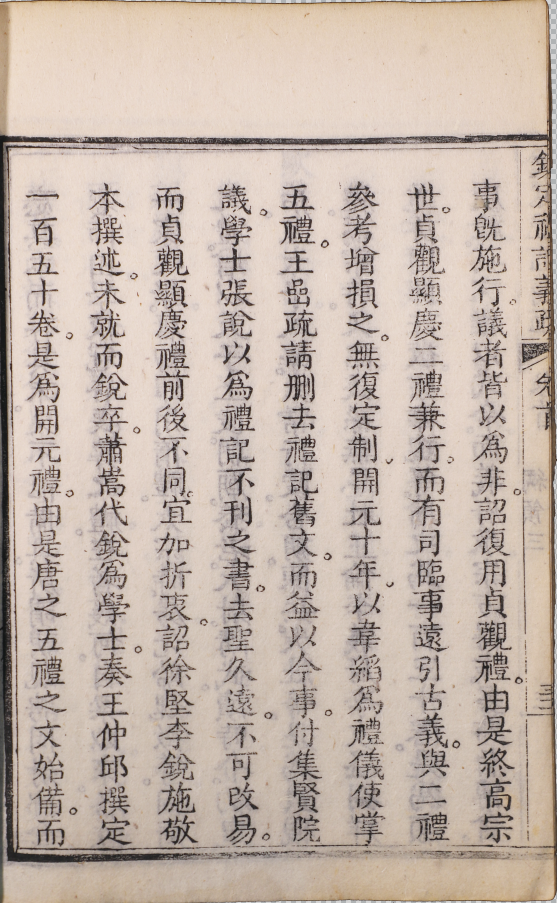 欽定禮記義疏 卷首
事旣施行。議者皆以爲非。詔復用貞觀禮。由是終高宗
世。貞觀顯慶二禮兼行。而有司臨事遠引古義。與二禮
參考增損之。無復定制。開元十年。以韋縚爲禮儀使掌
五禮。王嵒疏請刪去禮記舊文。而益以今事。付集賢院
議。學士張說以爲禮記不刊之書。去聖久遠。不可改易。
而貞觀顯慶禮前後不同。宜加折衷。詔徐堅李銳施敬
本撰述。未就而銳卒。蕭嵩代銳爲學士。奏王仲邱撰定
一百五十卷。是爲開元禮。由是唐之五禮之文始備。而